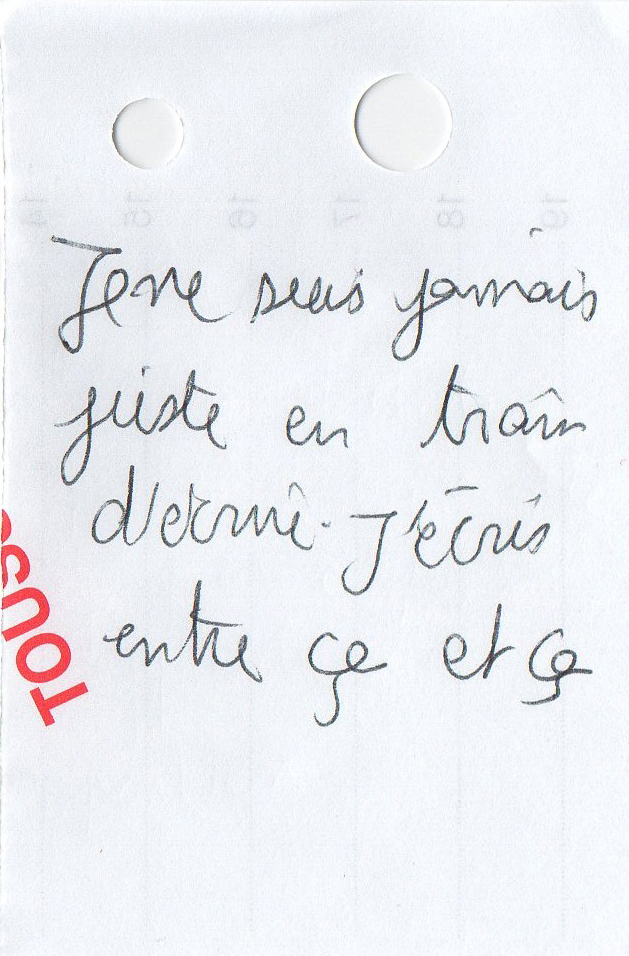 14 15 16 17 18 19
Je ne suis jamais
juste en train
d'écrire. J'écris
entre ça et ça
TOUS